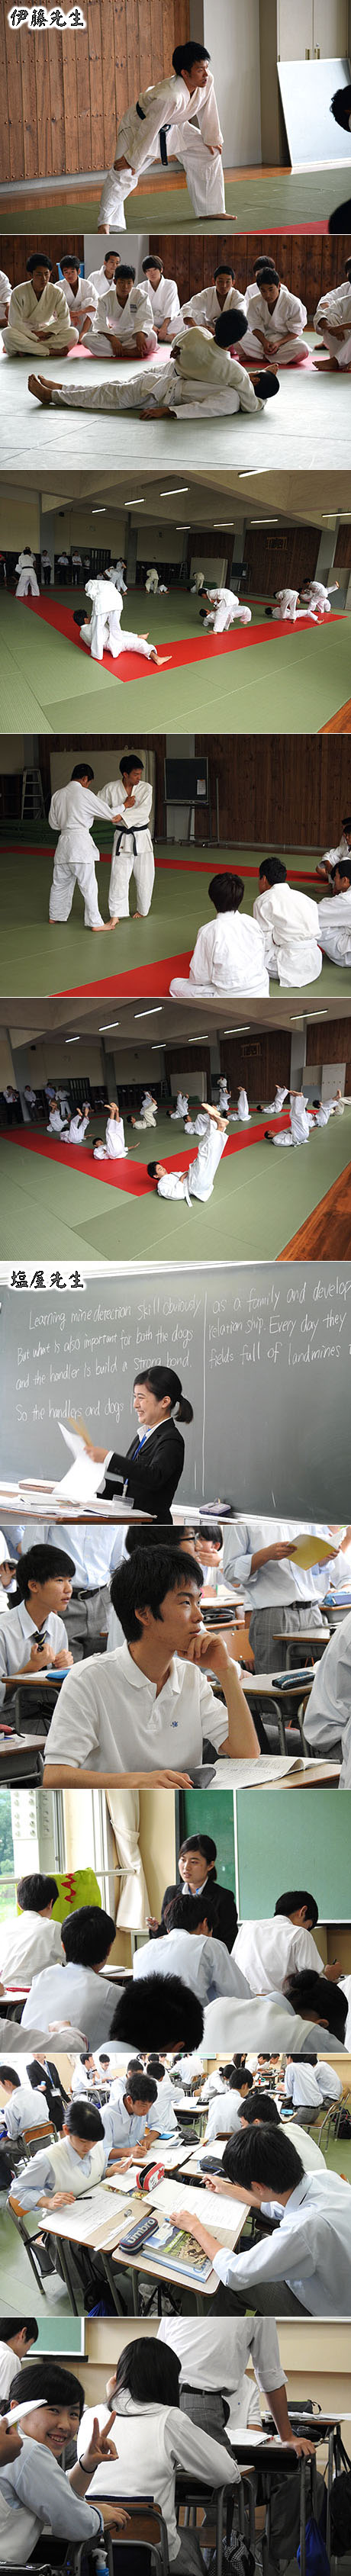 伊藤先生
塩屋先生
Learning mine detection skill obviously
But what is also important for both the dogs
and the handler is build a strong bond.
So the handlers and dogs
as a family and develop
relation ship. Every day they
fields full of landmines
umbro